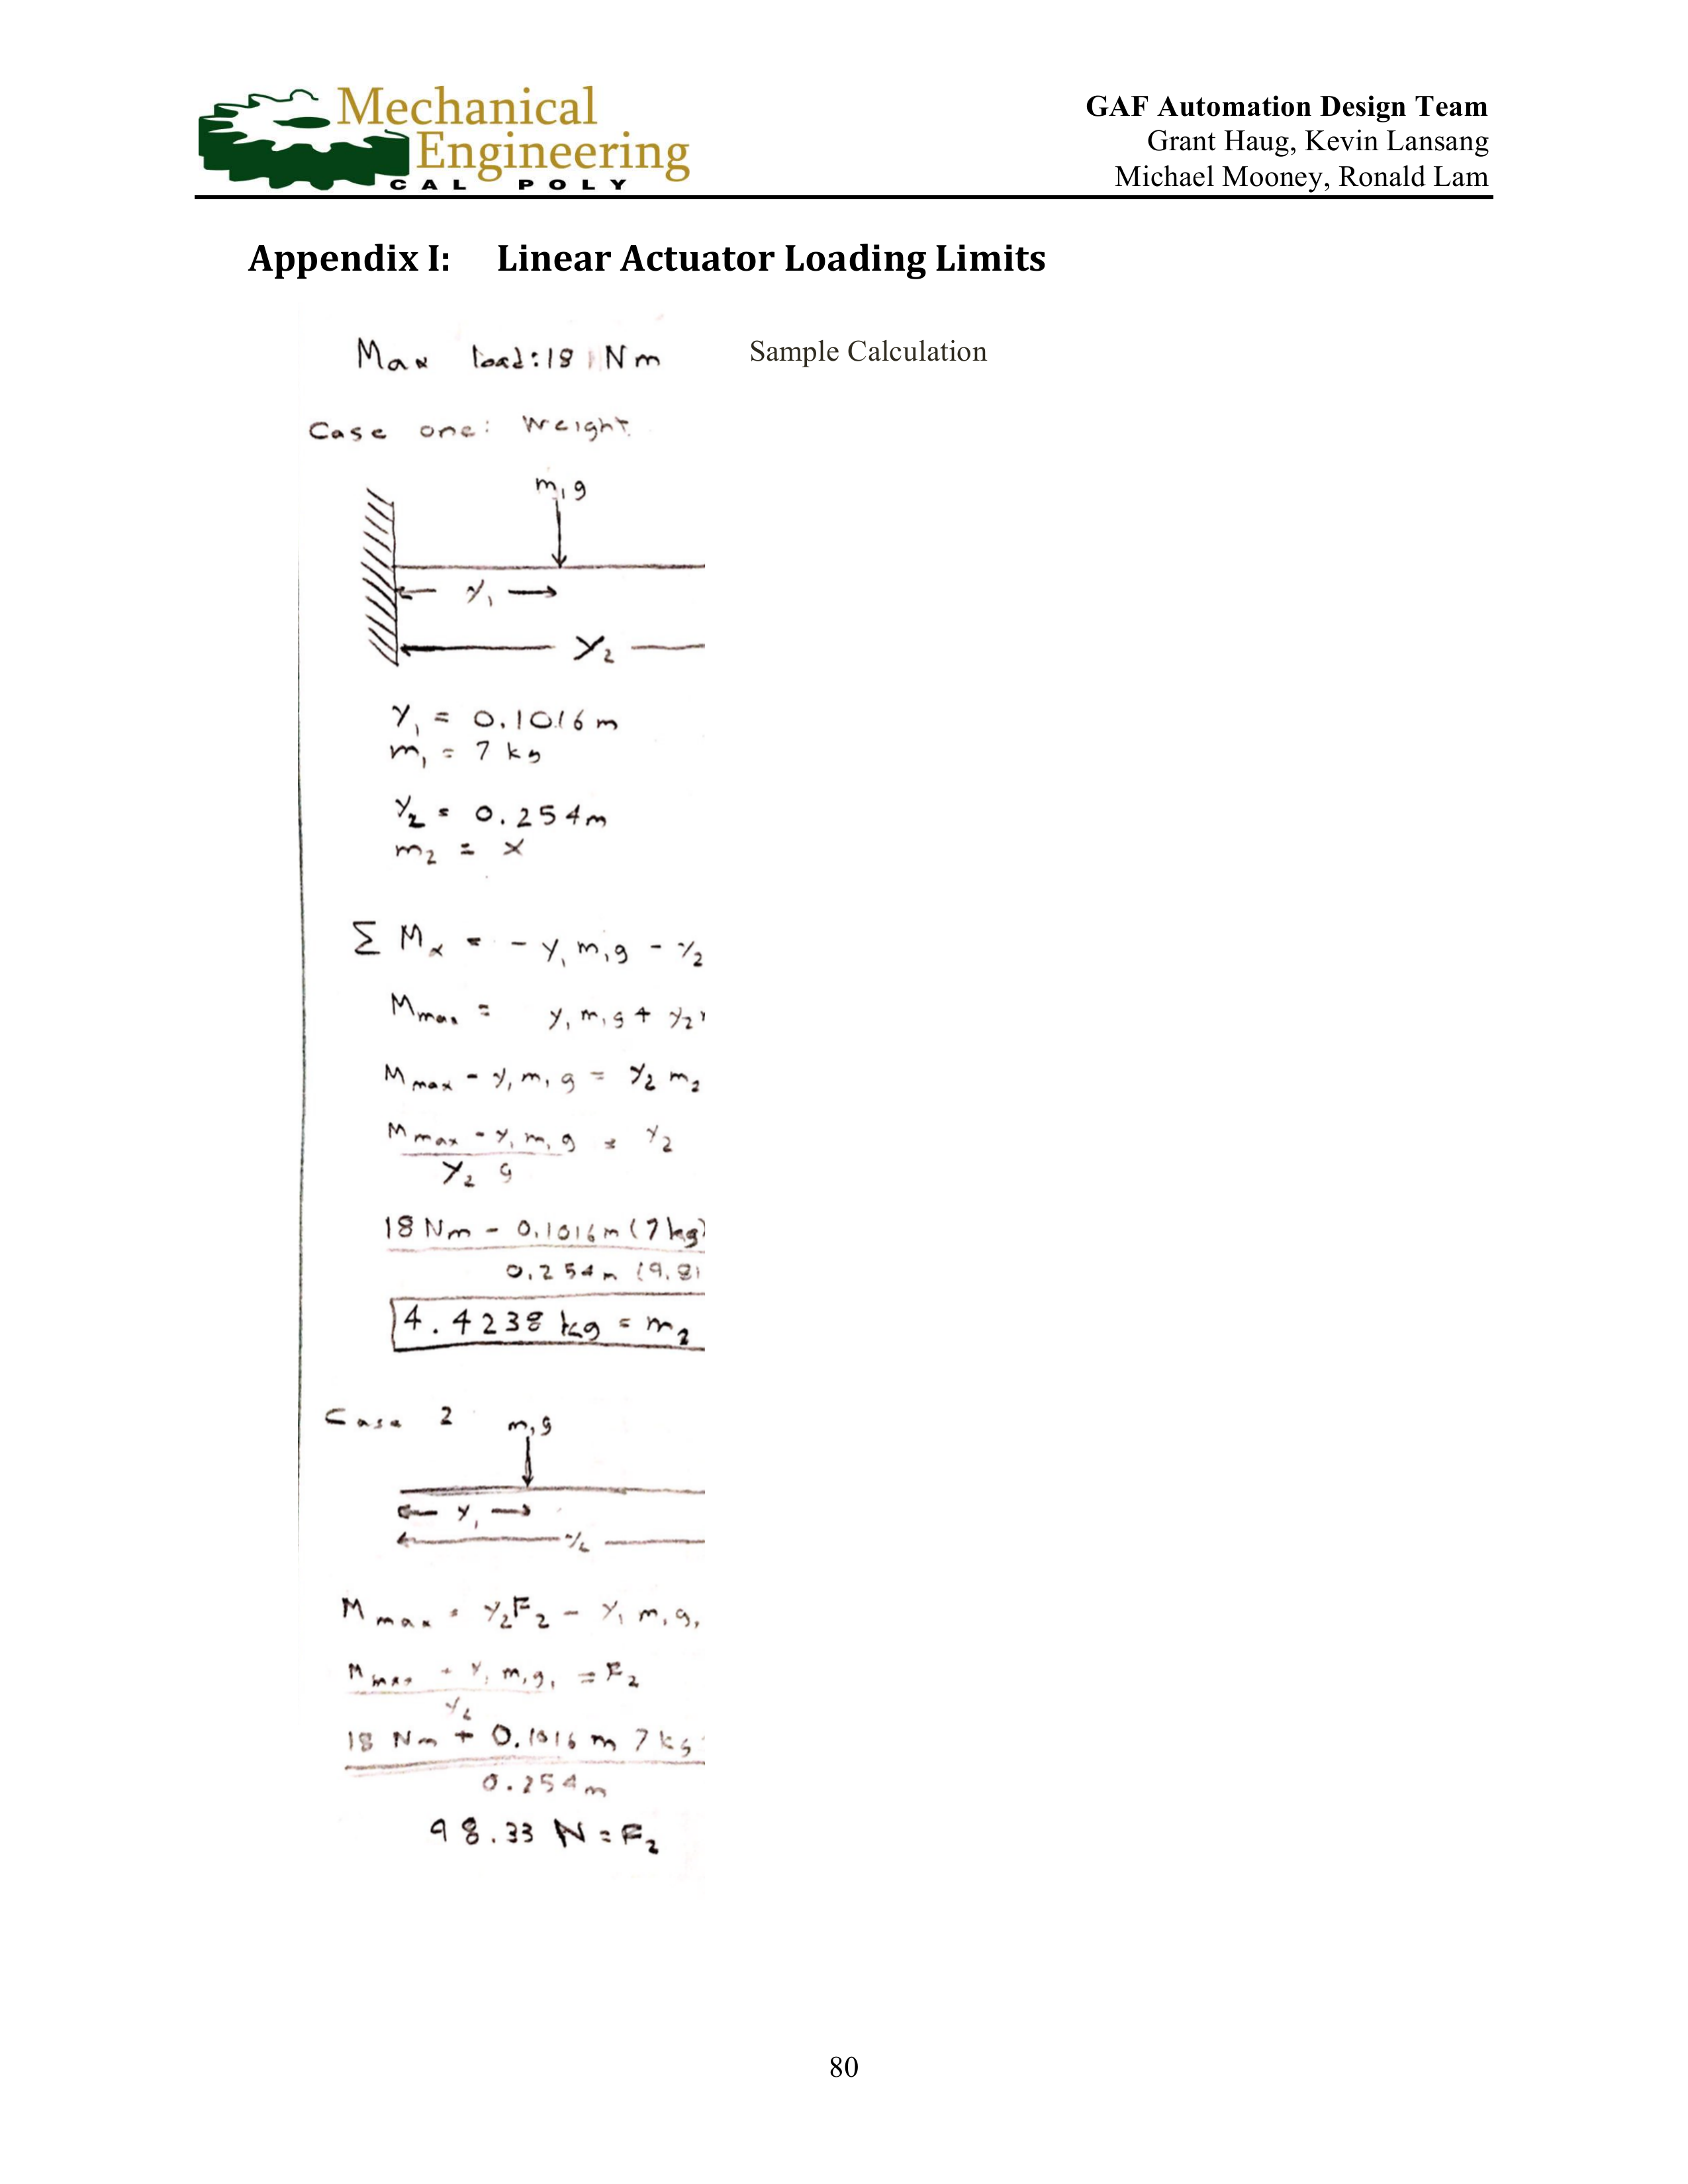 Mechanical
Engineering
CAL POLY
GAF Automation Design Team
Grant Haug, Kevin Lansang
Michael Mooney, Ronald Lam
Appendix I: Linear Actuator Loading Limits
Max load: 18 Nm
Sample Calculation
Case one: Weight
m₁g
y₁
y₂
y₁ = 0.1016 m
m₁ = 7 kg
y₂ = 0.254 m
m₂ = x
Σ Mₓ = - y₁ m₁g - y₂
Mmax = y₁ m₁g + y₂
Mmax - y₁ m₁ g = y₂ m₂
Mmax - y₁ m₁ g = y₂
y₂ g
18 Nm - 0.1016 m (7 kg)
0.254 m (9.81
4.4238 kg = m₂
Case 2
m₁g
y₁
y₂
Mmax = y₂F₂ - y₁ m₁g₁
Mmax + y₁ m₁g₁ = F₂
y₂
18 Nm + 0.1016 m 7 kg
0.254 m
98.33 N = F₂
80